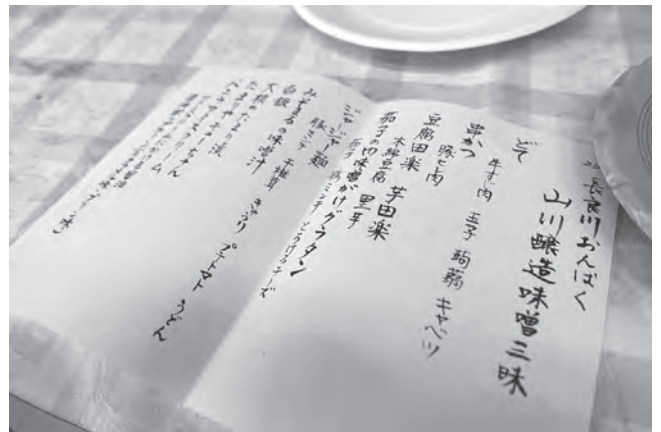 長良川おんぱく
山川醸造味噌三昧
どて
牛すじ肉 玉子 蒟蒻 キャベツ
串かつ
豚ヒレ肉
豆腐田楽 芋田楽
木綿豆腐 里芋
茄子の肉味噌がけグラタン
茄子 豚ミンチ とろけるチーズ
ジャージャー麺
豚ミンチ 干椎茸 きゅうり プチトマト うどん
みそまるの味噌汁
大根